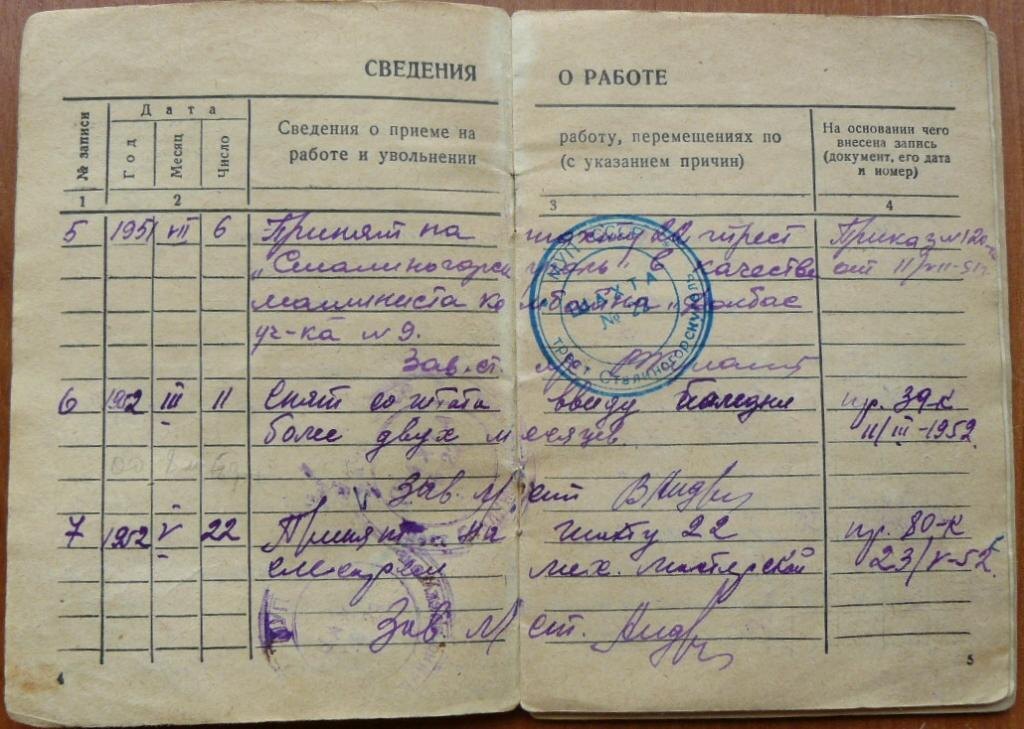 СВЕДЕНИЯ О РАБОТЕ
№ записи
Дата
Год
Месяц
Число
Сведения о приеме на работу, перемещениях по
работе и увольнении (с указанием причин)
На основании чего
внесена запись
(документ, его дата
и номер)
1 2 3 4
5 1951 VII 6 Принят на шахту 22 трест Приказ №120-к
„Сталиногорскуголь" в качестве от 11/VII-51г.
машиниста комбайна „Донбас
уч-ка №9.
Зав. ст.
МУП СССР
ШАХТА
№ 22
трест Сталиногорскуголь
6 1952 III 11 Снят со штата ввиду болезни пр. 39-к
более двух месяцев. 11/III-1952.
Зав. М/ст
7 1952 V 22 Принят на шахту 22 пр. 80-к
слесарем мех. мастерской 23/V-52
МУП
Зав. М/ст.
4 5